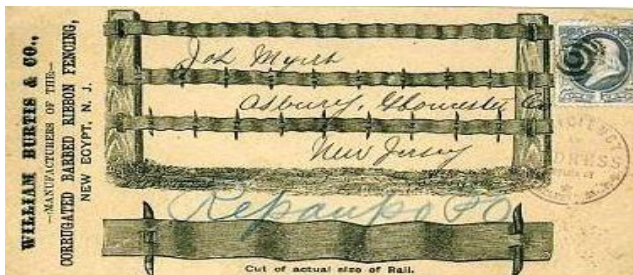 WILLIAM BURTIS & CO.,
—MANUFACTURERS OF THE—
CORRUGATED BARBED RIBBON FENCING,
NEW EGYPT, N. J.
Asbury, Gloucester Co
New Jersey
Repaupo PO
Cut of actual size of Rail.
DRESS